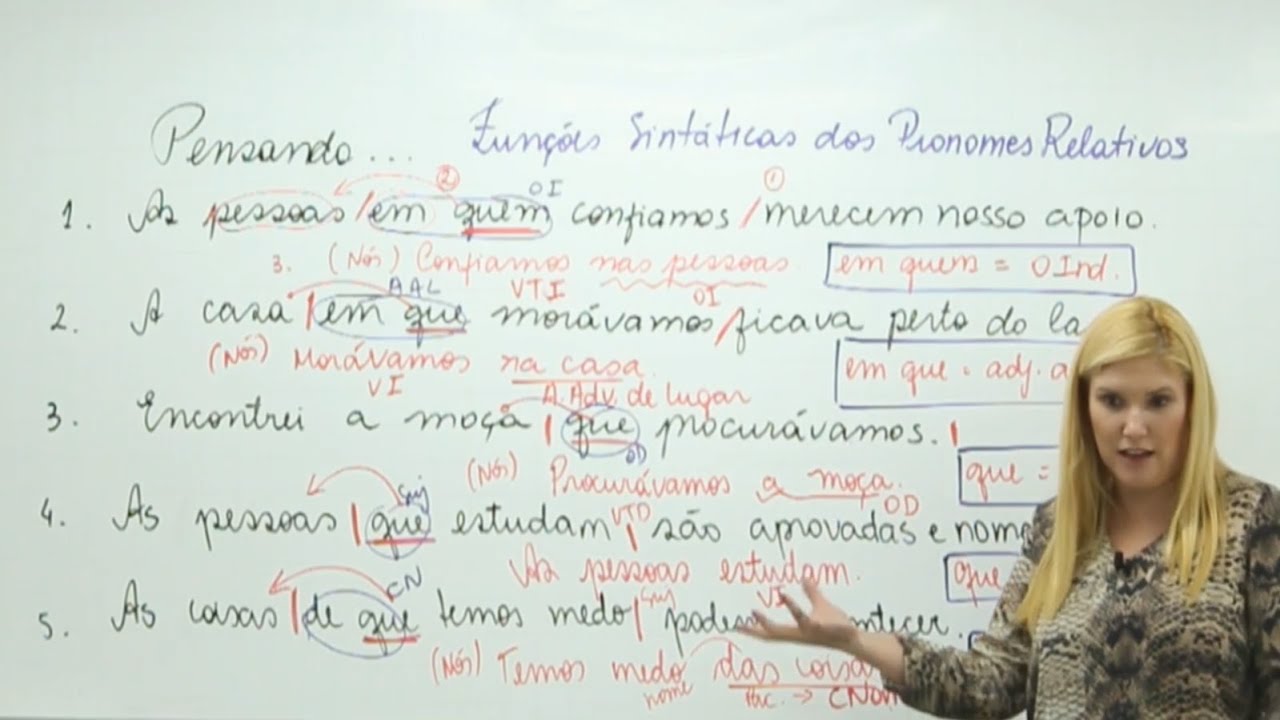 Pensando... Funções Sintáticas dos Pronomes Relativos
② OI ①
1. As pessoas / em quem confiamos / merecem nosso apoio.
3. (Nós) Confiamos nas pessoas. em quem = OInd.
AAL VTI OI
2. A casa / em que morávamos / ficava perto do la
(Nós) Morávamos na casa. em que = adj. a
VI A. Adv. de lugar
3. Encontrei a moça | que procurávamos. |
OD
(Nós) Procurávamos a moça. que =
Suj VTD OD
4. As pessoas | que estudam | são aprovadas e nome
As pessoas estudam. que
CN Suj VI
5. As casas | de que temos medo | podem ntecer.
(Nós) Temos medo das coisa
nome Pac. → CNom